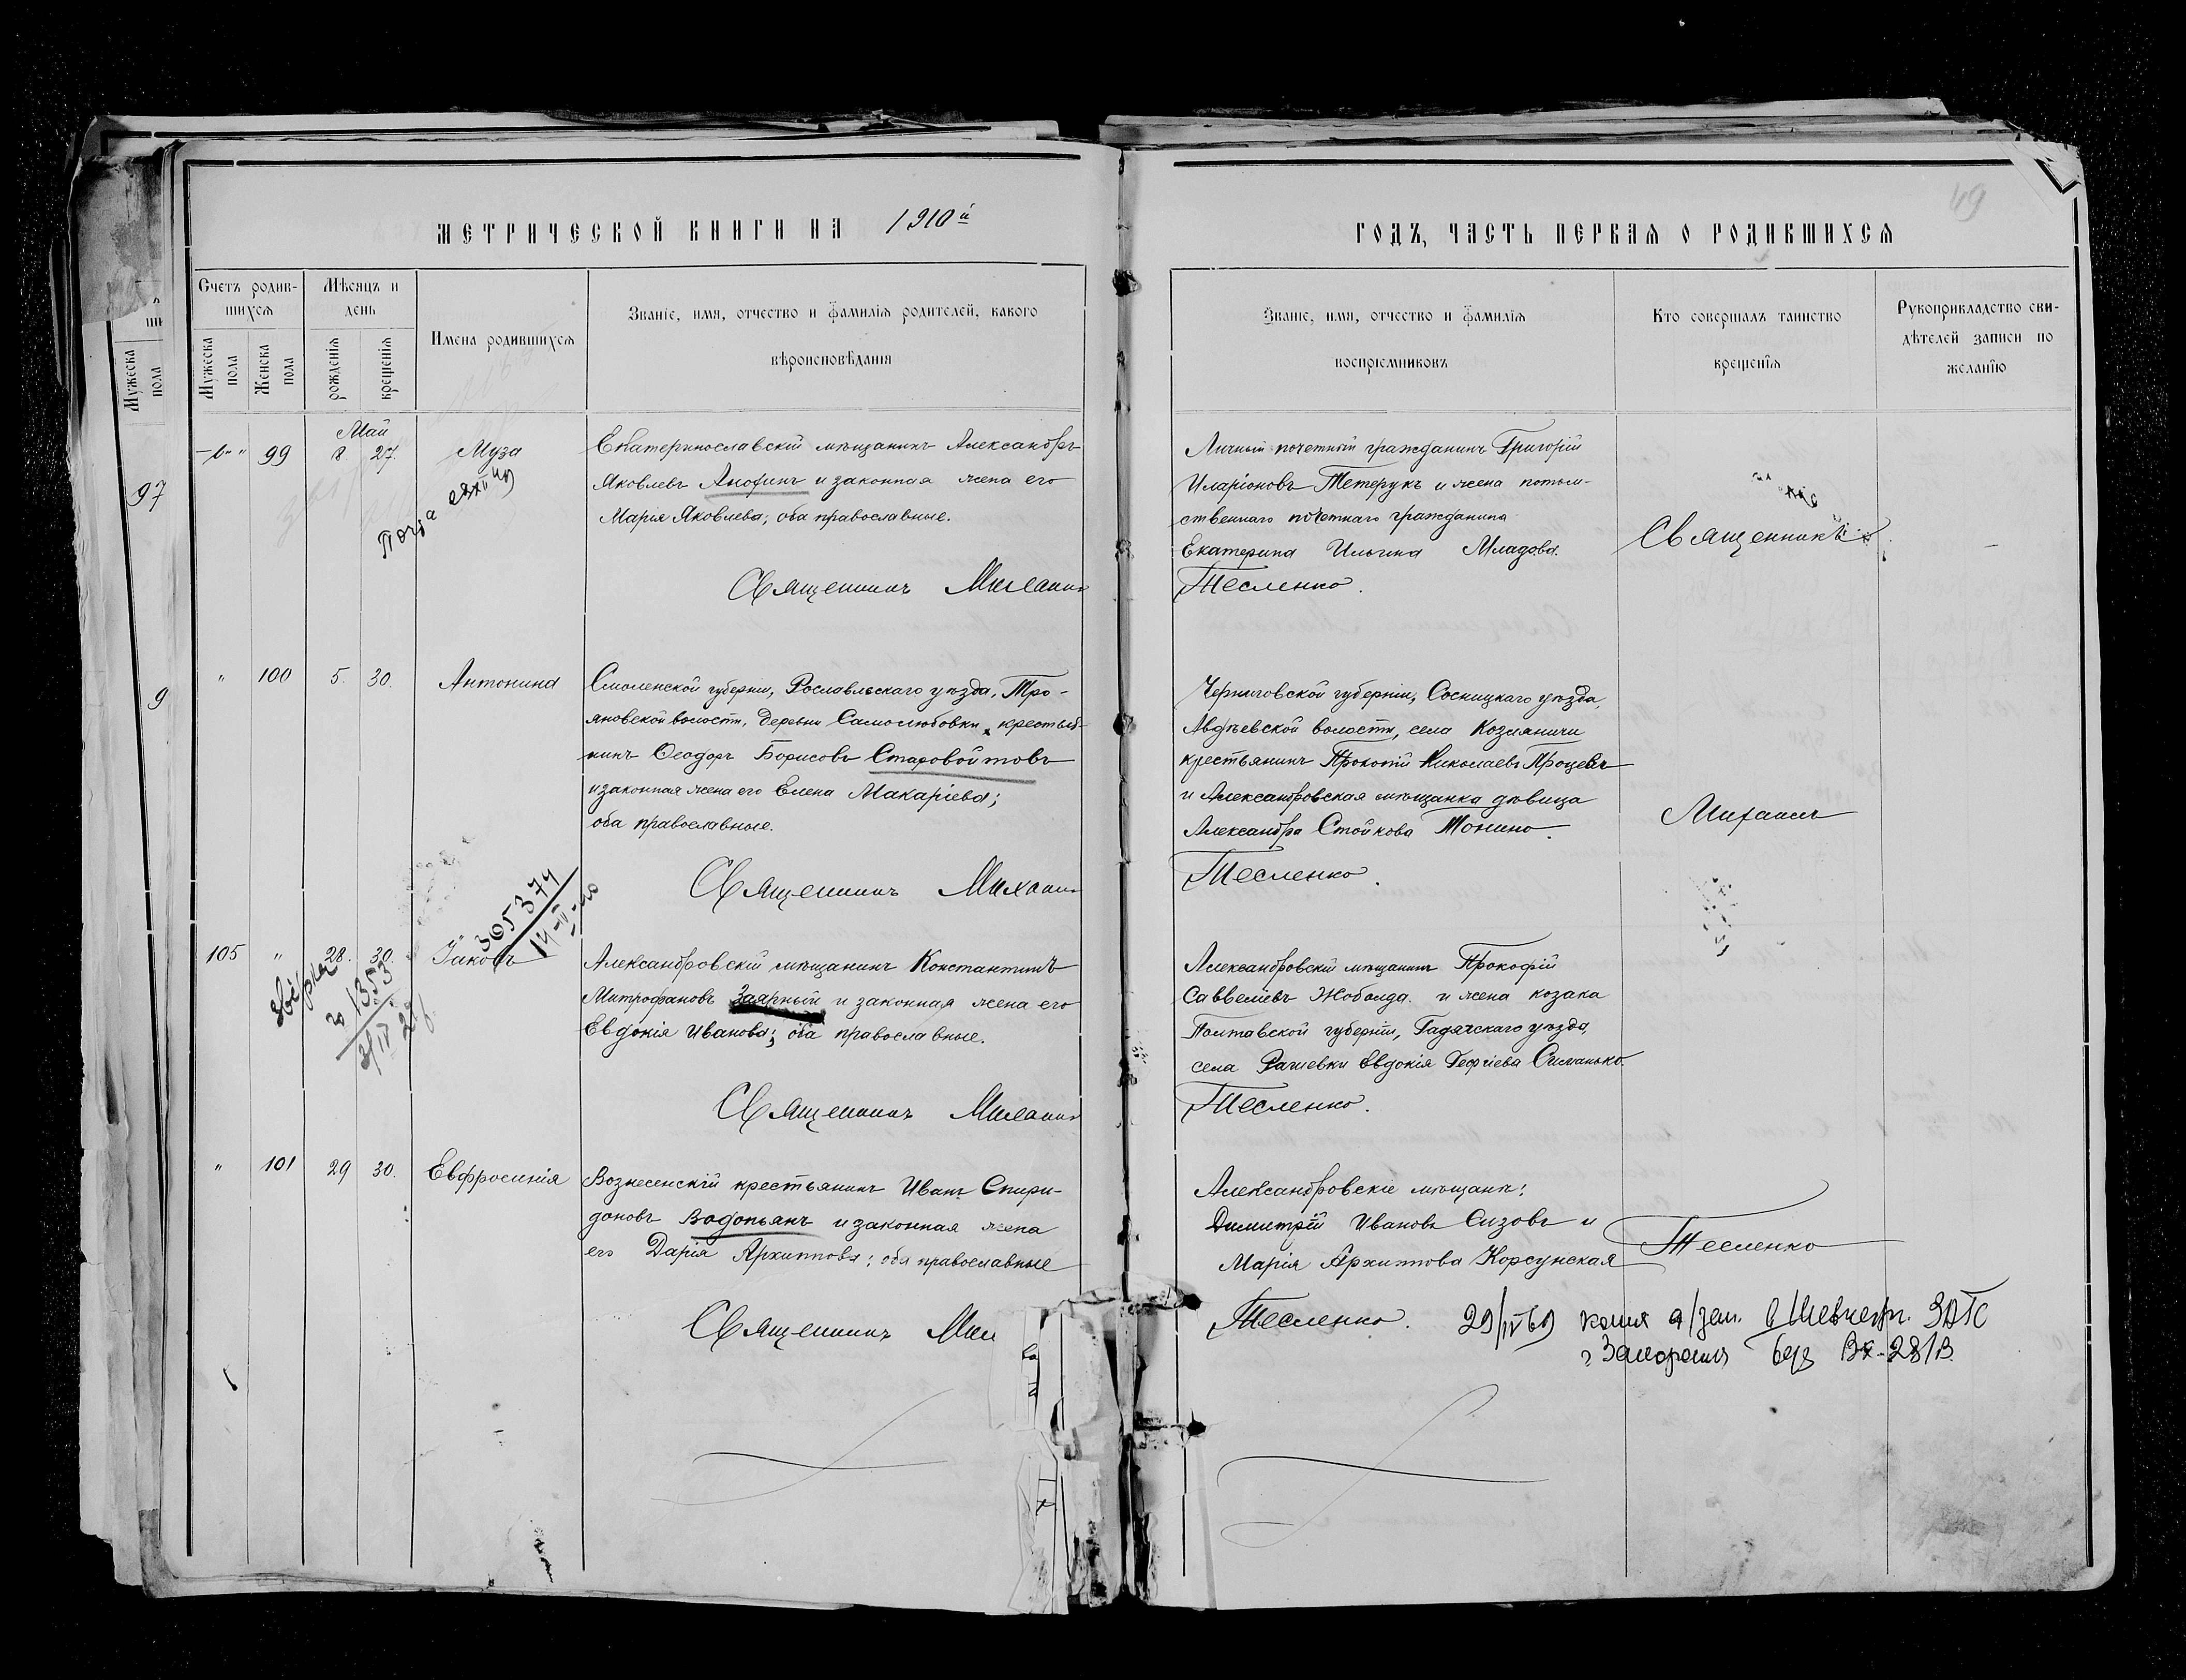 МЕТРИЧЕСКОЙ КНИГИ НА 1910й
Счетъ родившихся
Мужеска пола
Женска пола
Мѣсяцъ и день
рожденія
крещенія
Имена родившихся
Званіе, имя, отчество и фамилія родителей, какого
вѣроисповѣданія
Мужеска пола
97
9
Май
99
8. 27.
Муза
Екатеринославскій мѣщанинъ Александръ
Яковлевъ и законная жена его
Марія Яковлева; оба православные.
Священникъ Михаилъ
" 100 5. 30. Антонина
Смоленской губерніи, Рославльскаго уѣзда, Тро-
яновской волости, деревни Самолюбовки, крестья-
нинъ Ѳеодоръ Борисовъ Старовойтовъ
и законная жена его Елена Макаріева;
оба православные.
Священникъ Михаилъ
305374
14-II-40
105 " 28. 30. Іаковъ
1353
Александровскій мѣщанинъ Константинъ
Митрофановъ Заярный и законная жена его
Евдокія Иванова; оба православные.
Священникъ Михаилъ
" 101 29 30. Евфросинія
Вознесенскій крестьянинъ Иванъ Спири-
доновъ Водопьянъ и законная жена
его Дарія Архиппова; оба православные
Священникъ Ми
49
ГОДЪ, ЧАСТЬ ПЕРВАЯ О РОДИВШИХСЯ
Званіе, имя, отчество и фамилія
воспріемниковъ
Кто совершалъ таинство
крещенія
Рукоприкладство сви-
дѣтелей записи по
желанію
Личный почетный гражданинъ Григорій
Иларіоновъ Тетерукъ и жена потом-
ственнаго почетнаго гражданина
Екатерина Ильина Младова.
Тесленко.
Священникъ
Черниговской губерніи, Сосницкаго уѣзда,
Авдѣевской волости, села Козляничи
крестьянинъ Прокопій Николаевъ Процевъ
и Александровская мѣщанка дѣвица
Александра Стойкова Тонино.
Тесленко.
Михаилъ
Александровскій мѣщанинъ Прокофій
Саввеліевъ Жоболда и жена козака
Полтавской губерніи, Гадячскаго уѣзда,
села Рашевки Евдокія Георгіева Симанько.
Тесленко.
Александровскіе мѣщане:
Димитрій Ивановъ Сизовъ и
Марія Архиппова Корсунская
Тесленко
Тесленко.
29/IV 69 копия а/зап. в ЗАГС